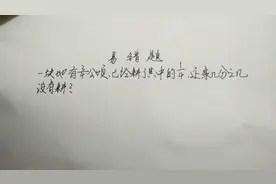 易错题
一块地有公顷,已经耕了其中的,还乘几分之几
没有耕?